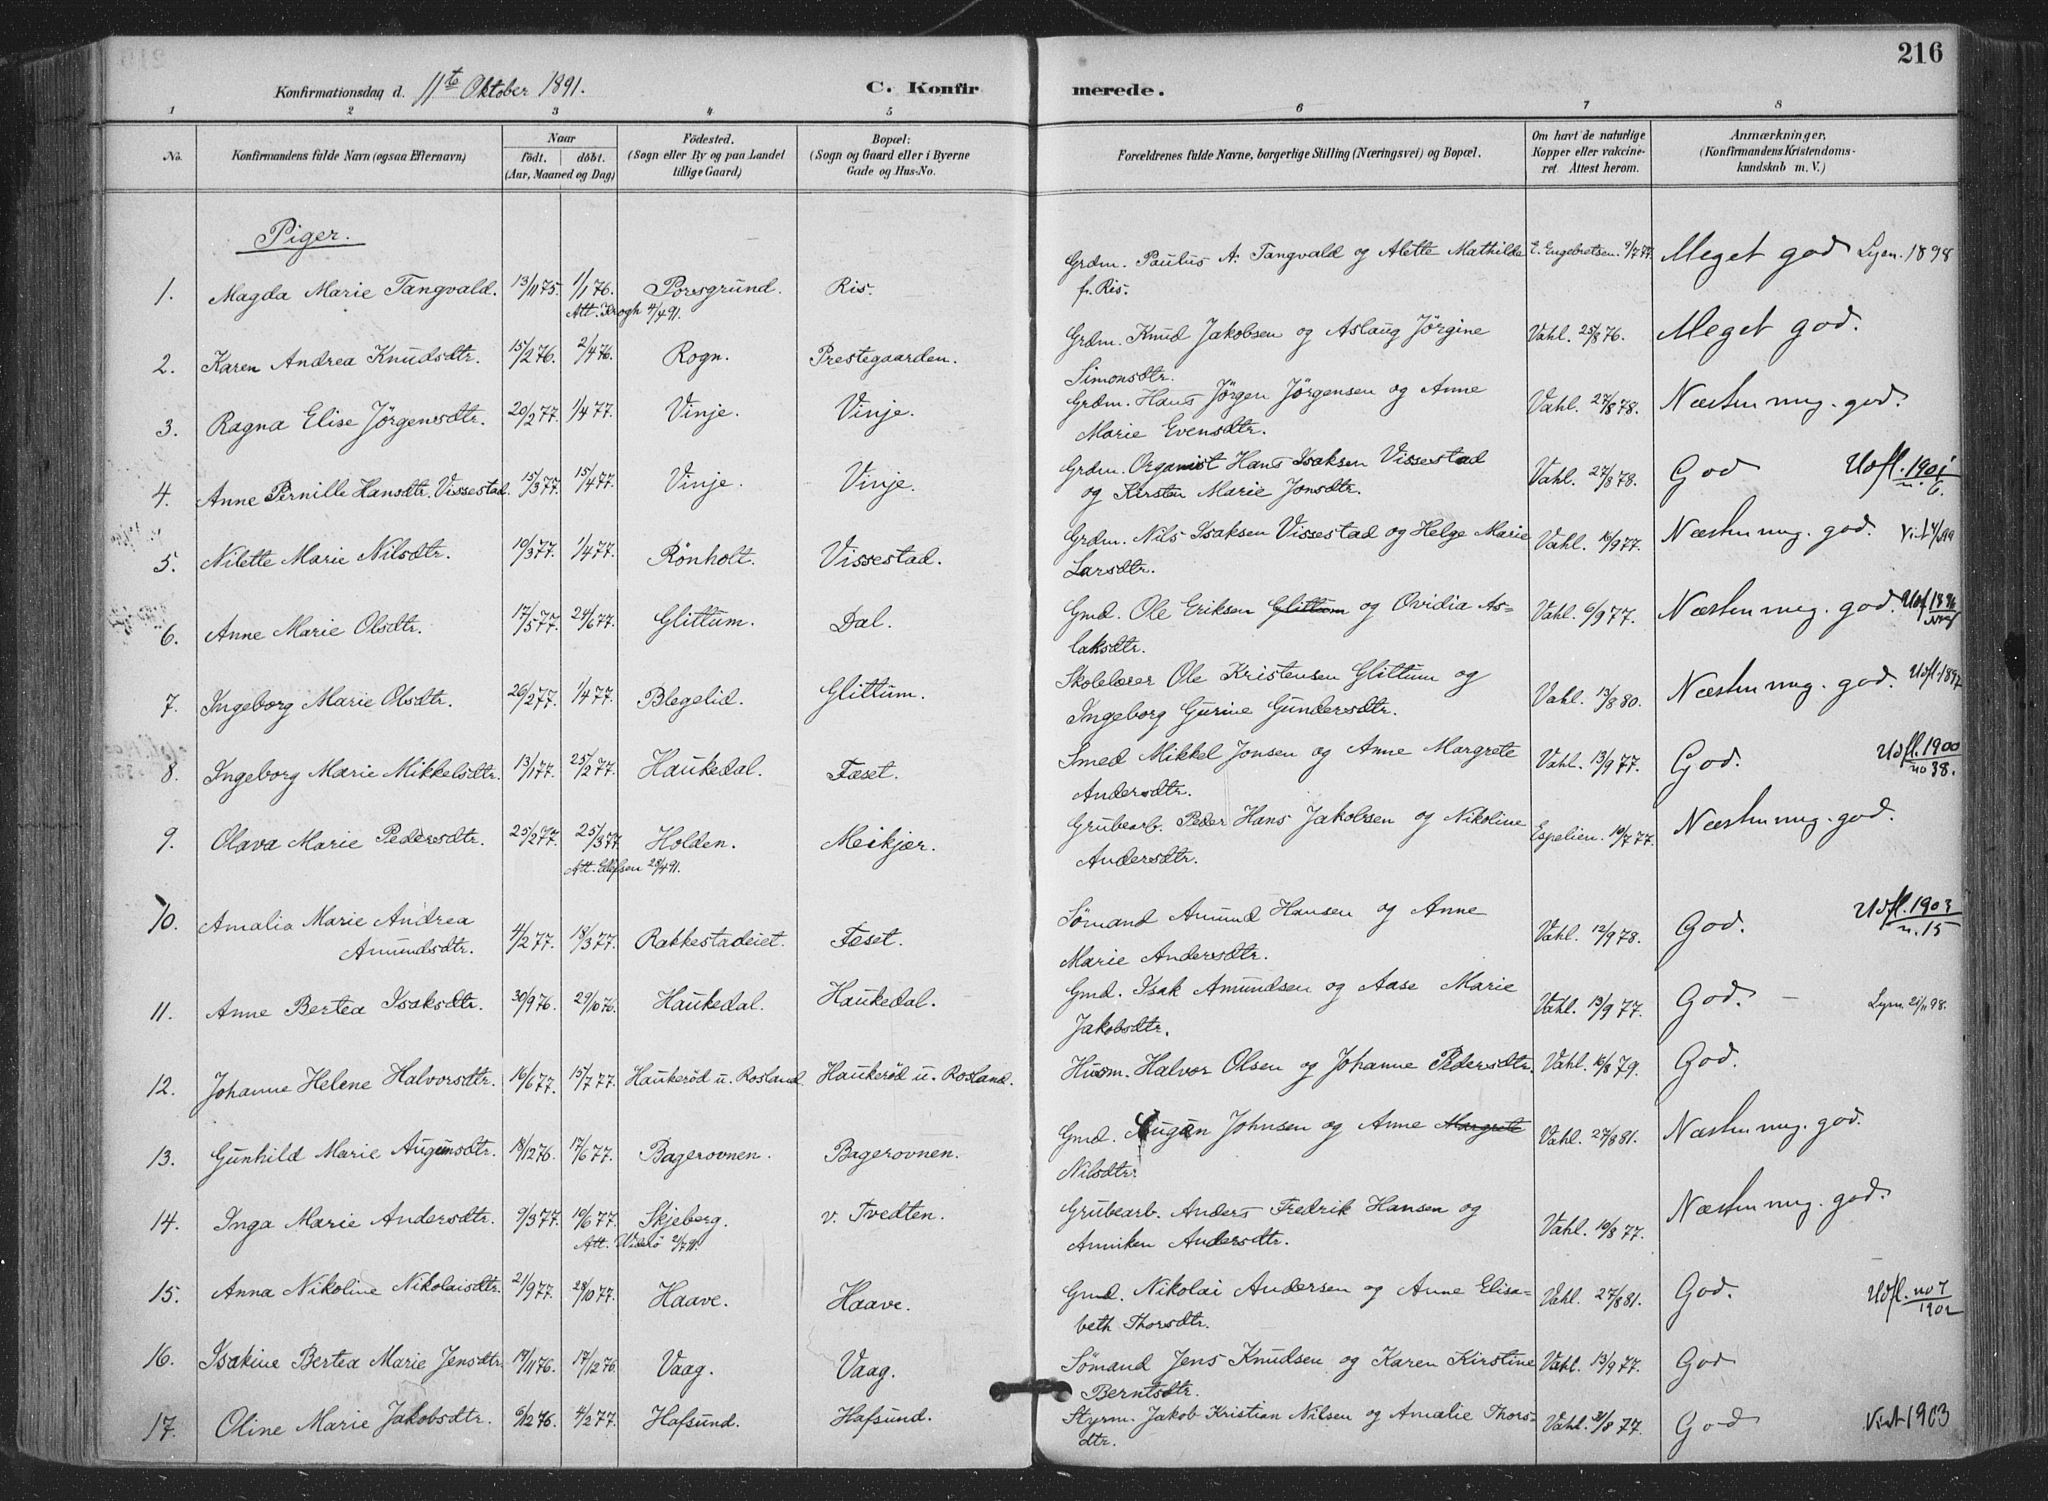 216
Konfirmationsdag d. 11te Oktober 1891. C. Konfirmerede.
1 2 3 4 5 6 7 8
No. Konfirmandens fulde Navn (ogsaa Efternavn) Naar födt. döbt. (Aar, Maaned og Dag) Födested. (Sogn eller By og paa Landet tillige Gaard) Bopæl: (Sogn og Gaard eller i Byerne Gade og Hus-No. Forældrenes fulde Navne, borgerlige Stilling (Næringsvei) og Bopæl. Om havt de naturlige Kopper eller vaccineret Attest herom. Anmærkninger. (Konfirmandens Kristendomskundskab m. V.)
Piger.
1. Magda Marie Tangvald. 13/11 75. 1/1 76. Att. Krogh 4/4 91. Porsgrund. Ris. Grdm. Paulus A. Tangvald og Alette Mathilde fr. Ris. E. Engebretsen. 9/7 77. Meget god Lysn. 1898
2. Karen Andrea Knudsdtr. 15/2 76. 2/4 76. Rogn. Prestegaarden. Grdm. Knud Jakobsen og Aslaug Jörgine Simonsdtr. Vahl. 25/8 76. Meget god.
3. Ragna Elise Jörgensdtr. 20/2 77. 1/4 77. Vinje. Vinje. Grdm. Hans Jörgen Jörgensen og Anne Marie Evensdtr. Vahl. 27/8 78. Næsten meg. god.
4. Anne Pernille Hansdtr. Vissestad. 15/3 77. 15/4 77. Vinje. Vinje. Grdm. Organist Hans Isaksen Vissestad og Kirsten Marie Jonsdtr. Vahl. 27/8 78. God Udfl. 1901 n. 6.
5. Nilette Marie Nilsdtr. 10/3 77. 1/4 77. Rönholt. Vissestad. Grdm. Nils Isaksen Vissestad og Helge Marie Larsdtr. Vahl. 16/9 77. Næsten meg. god.
6. Anne Marie Olsdtr. 17/5 77. 24/6 77. Glittum. Dal. Gmd. Ole Eriksen Glittum og Ovidia Aslaksdtr. Vahl. 6/9 77. Næsten meg. god.
7. Ingeborg Marie Olsdtr. 26/2 77. 1/4 77. Blegelid. Glittum. Skolelærer Ole Kristensen Glittum og Ingeborg Gurine Gundersdtr. Vahl. 13/8 80. Næsten meg. god. Udfl. 1897
8. Ingeborg Marie Mikkelsdtr. 13/1 77. 25/2 77. Haukedal. Fæset. Smed Mikkel Jonsen og Anne Margrete Andersdtr. Vahl. 13/9 77. God. Udfl. 1900 no 38.
9. Olava Marie Pedersdtr. 25/2 77. 25/3 77. Att. Ellefsen 28/4 91. Holden. Meikjær. Grubearb. Peder Hans Jakobsen og Nikoline Andersdtr. Espelien. 10/7 77. Næsten meg. god.
10. Amalia Marie Andrea Amundsdtr. 4/2 77. 18/3 77. Rakkestadeiet. Fæset. Sömand Amund Hansen og Anne Marie Andersdtr. Vahl. 12/9 78. God. Udfl. 1903 n. 15
11. Anne Bertea Isaksdtr. 30/9 76. 29/10 76. Haukedal. Haukedal. Gmd. Isak Amundsen og Aase Marie Jakobsdtr. Vahl. 13/9 77. God. Lysn. 21/11 98.
12. Johanne Helene Halvorsdtr. 16/6 77. 15/7 77. Haukeröd u. Rosland. Haukeröd u. Rosland. Husm. Halvor Olsen og Johanne Pedersdtr. Vahl. 16/8 79. God.
13. Gunhild Marie Augunsdtr. 18/12 76. 17/6 77. Bagerovnen. Bagerovnen. Gmd. Augun Johnsen og Anne Margrete Nilsdtr. Vahl. 27/8 81. Næsten meg. god.
14. Inga Marie Andersdtr. 9/3 77. 10/6 77. Att. Widerö 2/7 91. Skjeberg. v. Tvedten. Grubearb. Anders Fredrik Hansen og Anniken Andersdtr. Vahl. 10/8 77. Næsten meg. god.
15. Anna Nikoline Nikolaisdtr. 21/9 77. 28/10 77. Haave. Haave. Gmd. Nikolai Andersen og Anne Elisabeth Thorsdtr. Vahl. 27/8 81. God. Udfl. no 7 1902
16. Isakine Bertea Marie Jensdtr. 17/11 76. 17/12 76. Vaag. Vaag. Sömand Jens Knudsen og Karen Kirstine Berntsdtr. Vahl. 13/9 77. God
17. Oline Marie Jakobsdtr. 6/12 76. 4/2 77. Hafsund. Hafsund. Styrm. Jakob Kristian Nilsen og Amalie Thorsdtr. Vahl. 31/8 77. God Viet 1903